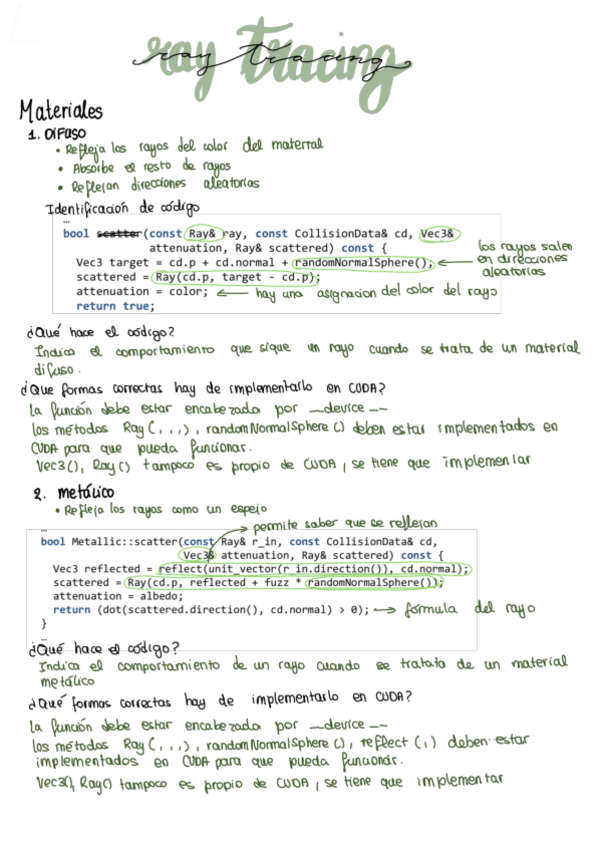 ray tracing
Materiales
1. DIFUSO
• Refleja los rayos del color del material
• Absorbe el resto de rayos
• Reflejan direcciones aleatorias
Identificación de código
...
bool scatter(const Ray& ray, const CollisionData& cd, Vec3&
attenuation, Ray& scattered) const {
Vec3 target = cd.p + cd.normal + randomNormalSphere();
los rayos salen
en direcciones
aleatorias
scattered = Ray(cd.p, target - cd.p);
attenuation = color; ← hay una asignación del color del rayo
return true;
¿Qué hace el código?
Indica el comportamiento que sigue un rayo cuando se trata de un material
difuso.
¿Que formas correctas hay de implementarlo en CUDA?
La función debe estar encabezada por __device__
los métodos Ray(,,,), randomNormalSphere() deben estar implementados en
CUDA para que pueda funcionar.
Vec3(), Ray() tampoco es propio de CUDA, se tiene que implementar
2. metálico
• Refleja los rayos como un espejo
→ permite saber que se reflejan
...
bool Metallic::scatter(const Ray& r_in, const CollisionData& cd,
Vec3& attenuation, Ray& scattered) const {
Vec3 reflected = reflect(unit_vector(r_in.direction()), cd.normal);
scattered = Ray(cd.p, reflected + fuzz * randomNormalSphere());
attenuation = albedo;
return (dot(scattered.direction(), cd.normal) > 0); → fórmula del rayo
}
...
¿Qué hace el código?
Indica el comportamiento de un rayo cuando se tratata de un material
metálico
¿Qué formas correctas hay de implementarlo en CUDA?
La función debe estar encabezada por __device__
los métodos Ray(,,,), randomNormalSphere(), reflect(,) deben estar
implementados en CUDA para que pueda funcionar.
Vec3(), Ray() tampoco es propio de CUDA, se tiene que implementar